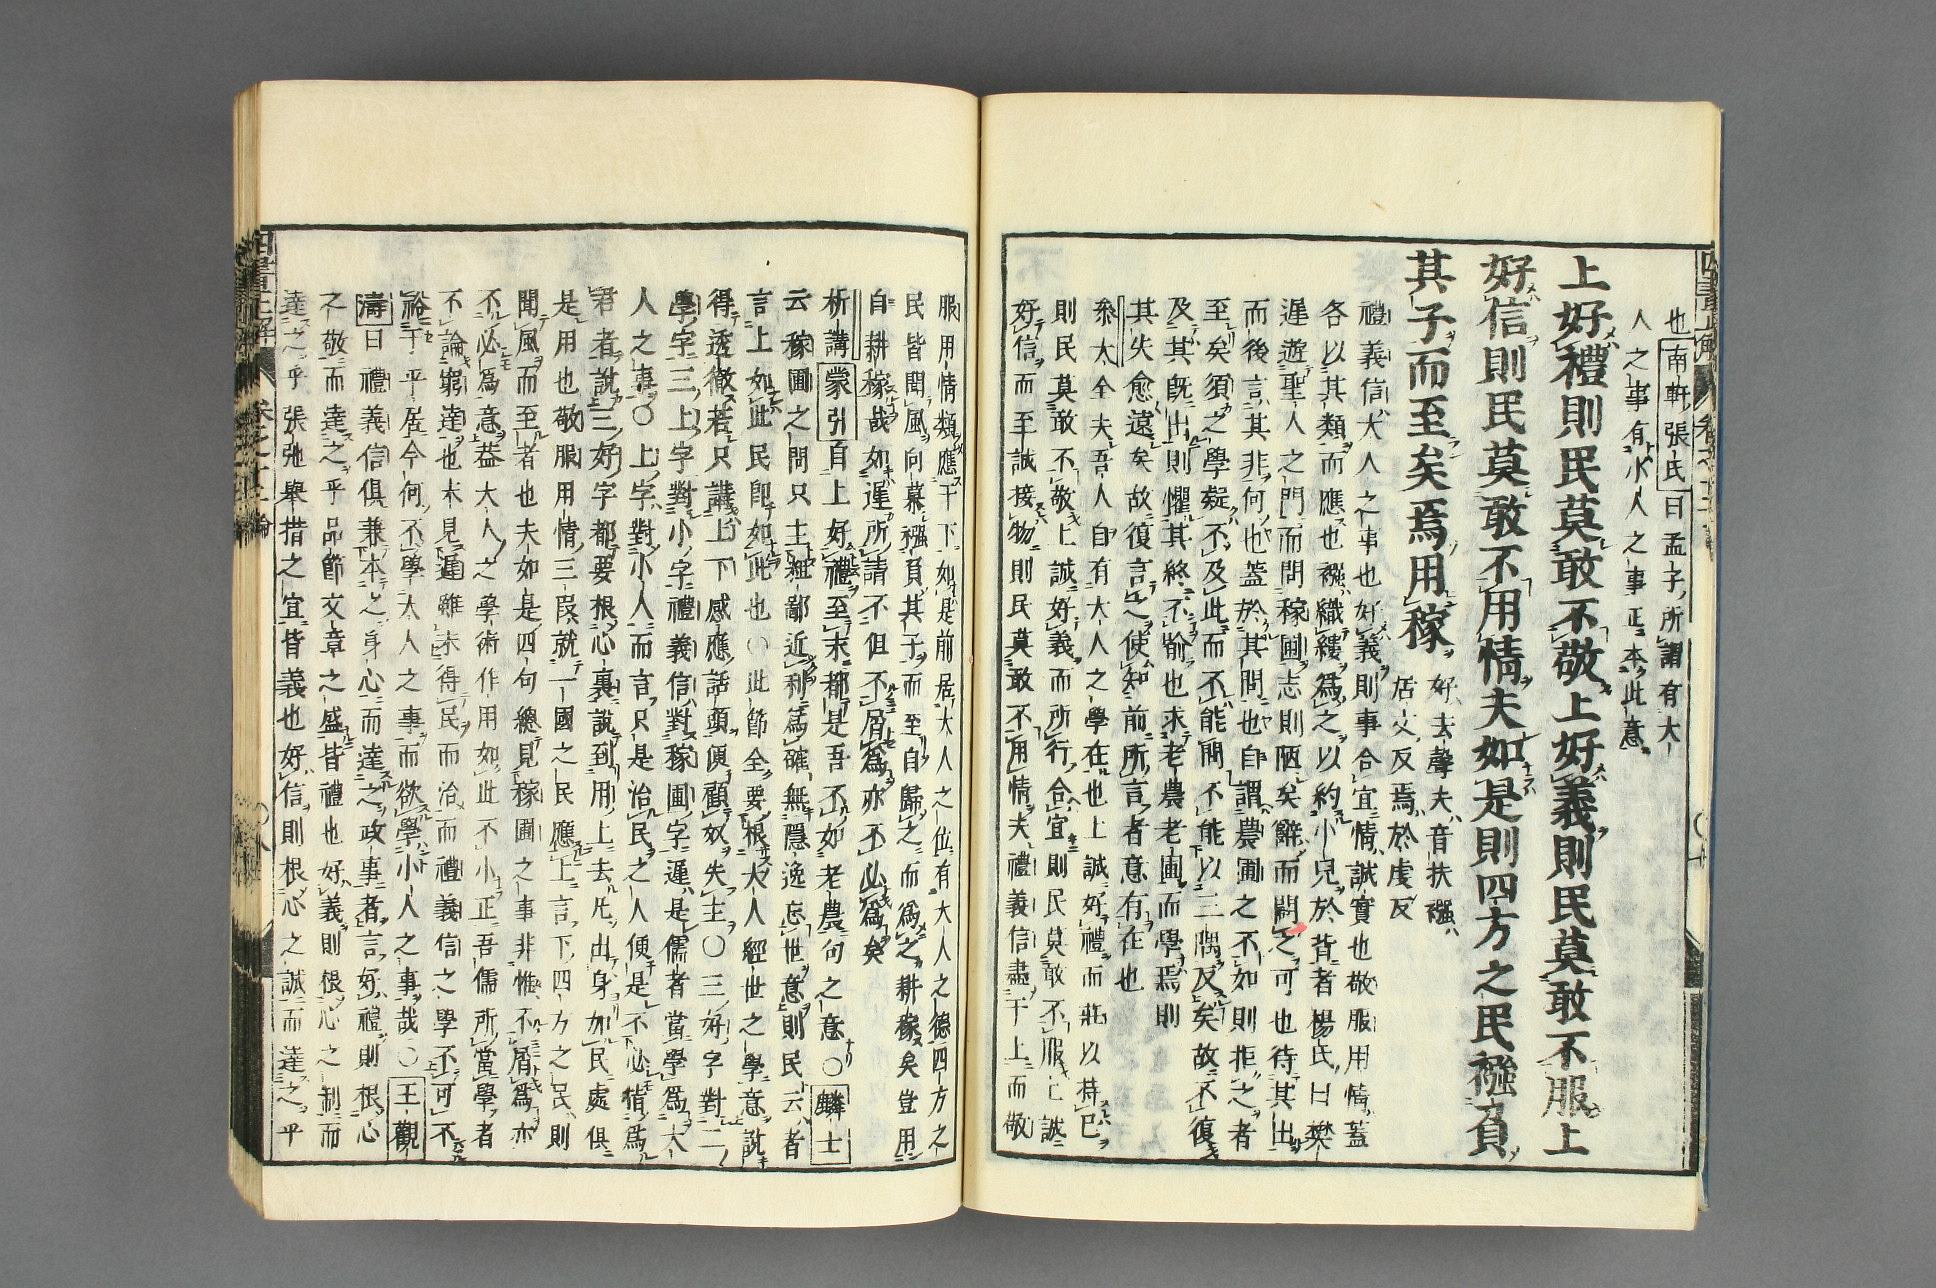 也南軒張氏曰孟子所謂有大
人之事有小人之事正本此意
上好禮則民莫敢不敬上好義則民莫敢不服上
好信則民莫敢不用情夫如是則四方之民襁負
其子而至矣焉用稼
好去聲夫音扶襁
居丈反焉於虔反
禮義信大人之事也好義則事合宜情誠實也敬服用情蓋
各以其類而應也襁織縷爲之以約小兒於背者楊氏曰樊
遲遊聖人之門而問稼圃志則陋矣辭而闢之可也待其出
而後言其非何也蓋於其問也自謂農圃之不如則拒之者
至矣須之學疑不及此而不能問不能以三隅反矣故不復
及其既出則懼其終不喻也求老農老圃而學焉則
其失愈遠矣故復言之使知前所言者意有在也
叅大全夫吾人自有大人之學在也上誠好禮而莊以持己
則民莫敢不敬上誠好義而所行合宜則民莫敢不服上誠
好信而至誠接物則民莫敢不用情夫禮義信盡于上而敬
服用情類應于下如是前居大人之位有大人之德四方之
民皆聞風向慕襁負其子而至自歸之而爲之耕稼矣豈用
自耕稼哉如遲所請不但不屑爲亦不必爲矣
析講蒙引自上好禮至末都是吾不如老農句之意〇麟士
云稼圃之問只主粗鄙近利爲確無隱逸忘世意則民云者
言上如此民即如此也〇此節全要根大人經世之學意說
得透徹若只講上下感應話頭便顧奴失主〇三好字對二
學字三上字對小字禮義信對稼圃字遲是儒者當學爲大
人之事〇上字對小人而言只是治民之人便是不必猜爲
君者說三好字都要根心裏說到用上去凡出身加民處俱
是用也敬服用情三叚就一國之民應上言下四方之民則
聞風而至者也夫如是四句總見稼圃之事非惟不屑爲亦
不必爲意葢大人之學術作用如此不小正吾儒所當學者
不論窮達也未見遲雖未得民而治而禮義信之學不可不
裕于平居今何不學大人之事而欲學小人之事哉〇王觀
濤曰禮義信俱兼本之身心而達之政事者言好禮則根心
之敬而達之乎品節文章之盛皆禮也好義則根心之制而
達之乎張弛舉措之宜皆義也好信則根心之誠而達之乎